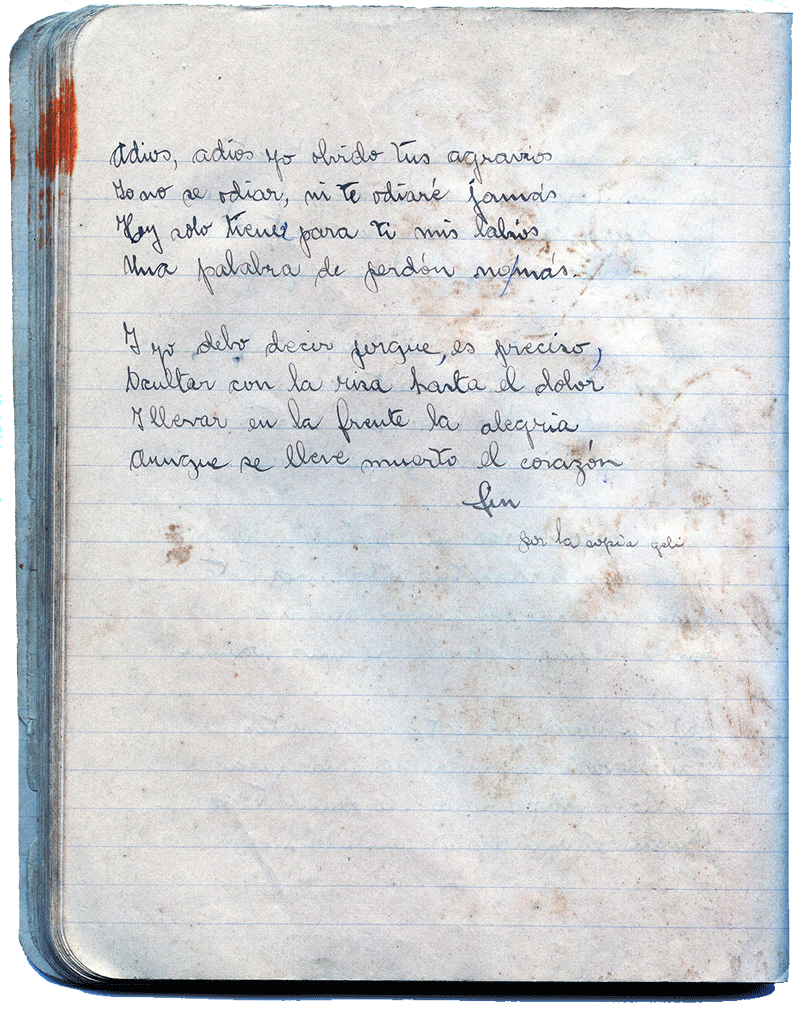 Adios, adios yo olvido tus agravios
Yo no se odiar, ni te odiaré jamás
Hoy solo tienes para ti mis labios
Una palabra de perdón no/más.
Y yo debo decir porque, es preciso,
Ocultar con la risa hasta el dolor
Y llevar en la frente la alegria
Aunque se lleve muerto el corazón
Fin
por la copia